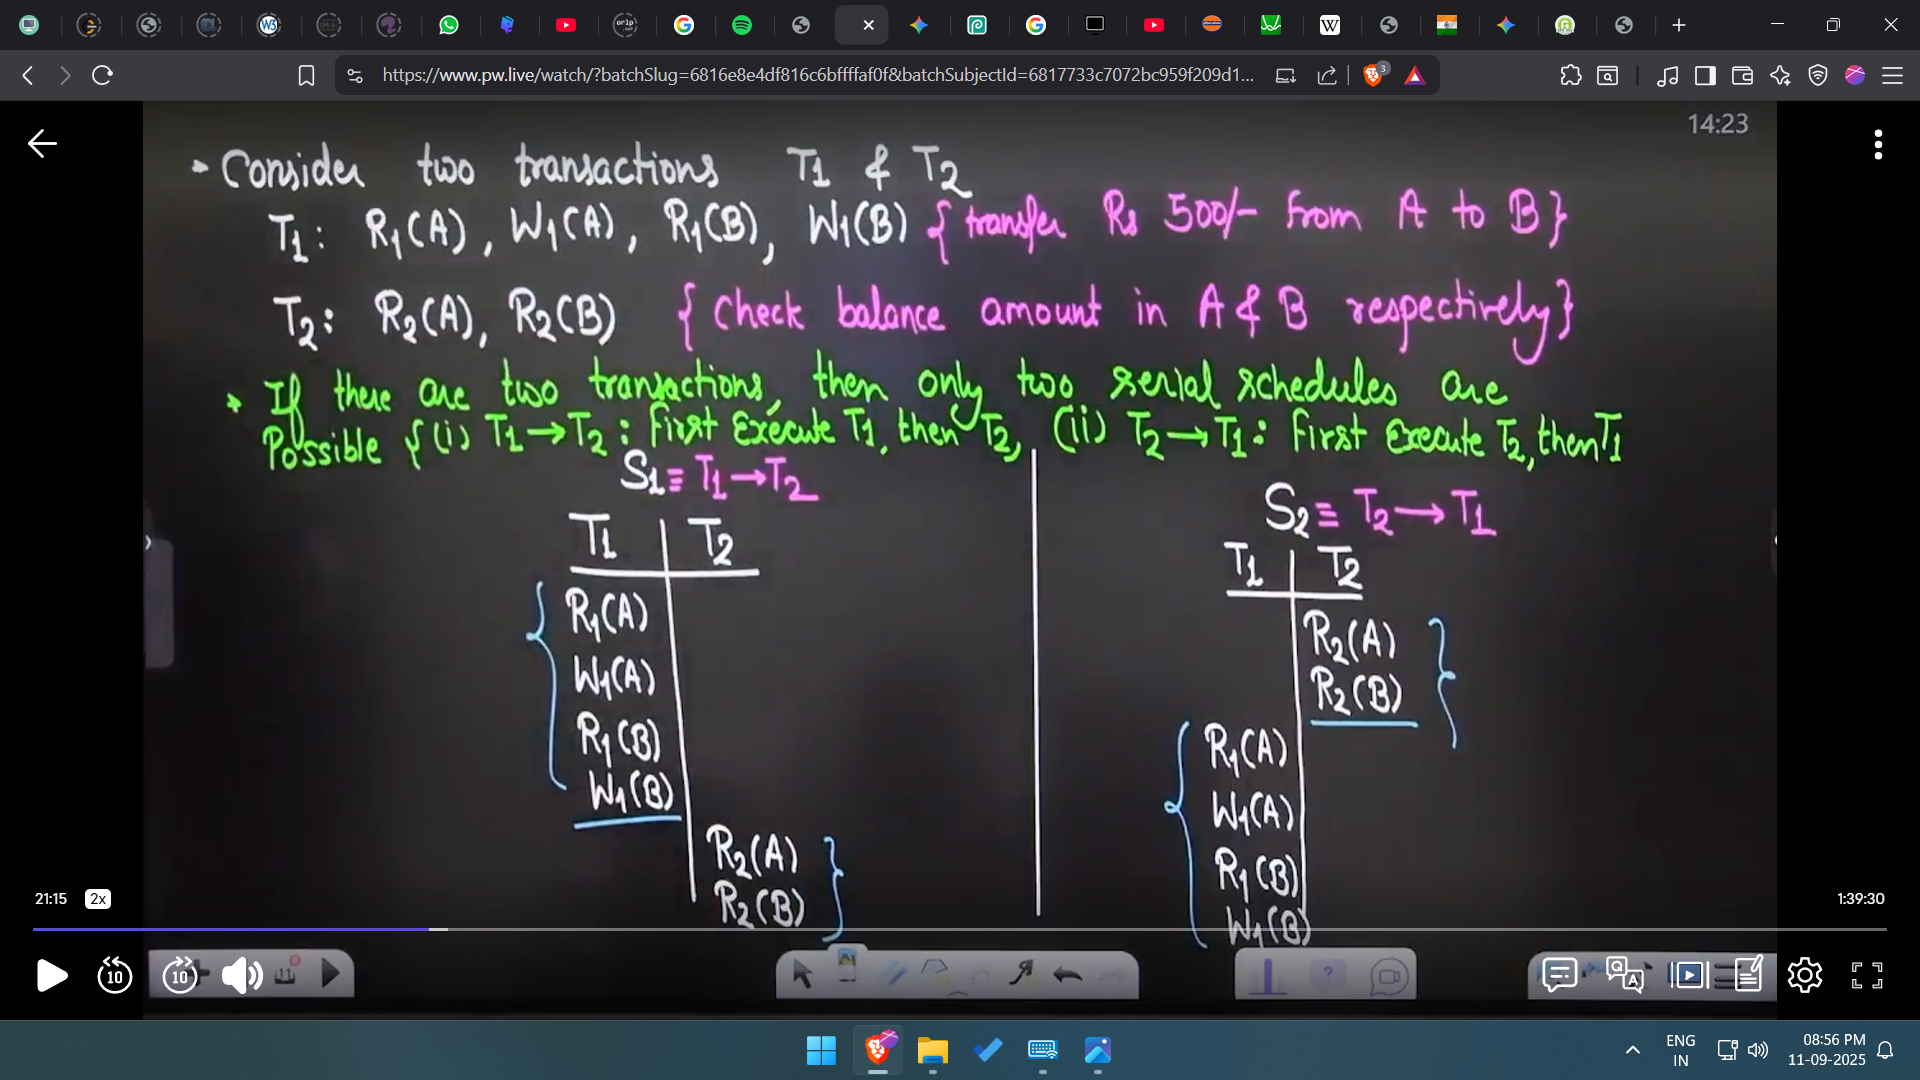 https://www.pw.live/watch/?batchSlug=6816e8e4df816c6bffffaf0f&batchSubjectId=6817733c7072bc959f209d1...
3
14:23
Consider two transactions T1 & T2
T1: R1(A), W1(A), R1(B), W1(B) {transfer Rs 500/- from A to B}
T2: R2(A), R2(B) {Check balance amount in A & B respectively}
If there are two transactions, then only two serial schedules are
Possible {(i) T1→T2: First Execute T1, then T2, (ii) T2→T1: First Execute T2, then T1
S1≡T1→T2
T1 T2
R1(A)
W1(A)
R1(B)
W1(B)
R2(A)
R2(B)
S2≡T2→T1
T1 T2
R2(A)
R2(B)
R1(A)
W1(A)
R1(B)
W1(B)
21:15 2x
1:39:30
10 10
ENG
IN
08:56 PM
11-09-2025